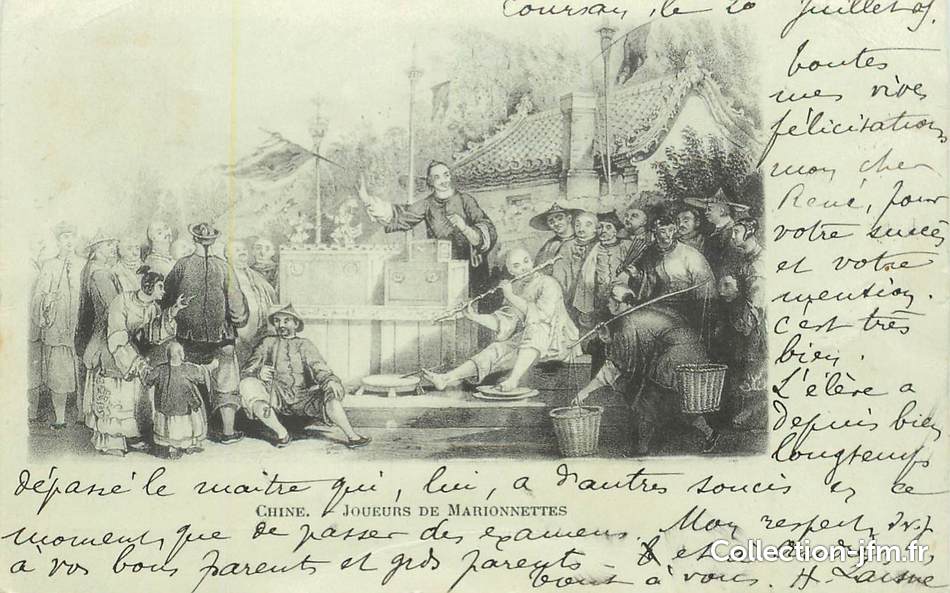 Coursan, le 20 Juillet 05.
Toutes
mes vives
félicitations
mon cher
René, pour
votre succès
et votre
mention.
c'est très
bien.
L'élève a
depuis bien
longtemps
dépassé le maitre qui, lui, a d'autres soucis en ce
CHINE. - JOUEURS DE MARIONNETTES
moment, que de passer des examens. Mon respect
à vos bons parents et gds parents - et
Collection-jfm.fr
tout à vous. H.